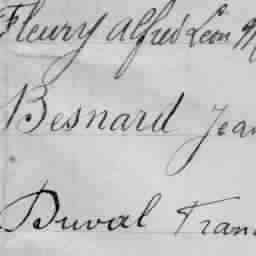 Fleury Alfred Léon M
Besnard Jean
Duval Fran